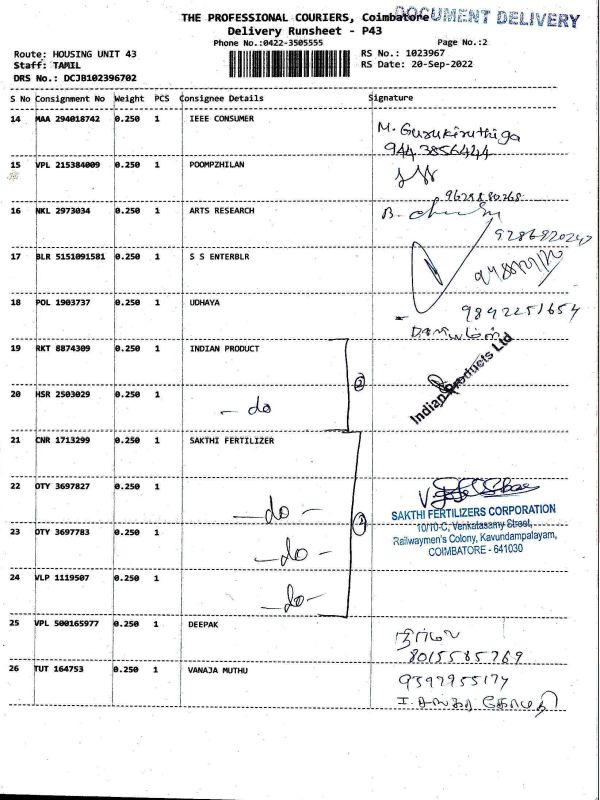 THE PROFESSIONAL COURIERS, Coimbatore
DOCUMENT DELIVERY
Delivery Runsheet - P43
Phone No.:0422-3505555
Page No.:2
Route: HOUSING UNIT 43
RS No.: 1023967
Staff: TAMIL
RS Date: 20-Sep-2022
DRS No.: DCJB102396702
S No Consignment No Weight PCS Consignee Details Signature
14 MAA 294018742 0.250 1 IEEE CONSUMER
M. Gurukiruthiga
944 3856444
15 VPL 215384009 0.250 1 POOMPZHILAN
9629880268
16 NKL 2973034 0.250 1 ARTS RESEARCH
B.
9286920240
17 BLR 5151091581 0.250 1 S S ENTERBLR
18 POL 1903737 0.250 1 UDHAYA
9842251654
19 RKT 8874309 0.250 1 INDIAN PRODUCT
2
Indian Products Ltd
20 HSR 2503029 0.250 1 - do
21 CNR 1713299 0.250 1 SAKTHI FERTILIZER
22 OTY 3697827 0.250 1 -do-
SAKTHI FERTILIZERS CORPORATION
10/10-C, Venkatasamy Street,
Railwaymen's Colony, Kavundampalayam,
COIMBATORE - 641030
23 OTY 3697783 0.250 1 -do-
24 VLP 1119507 0.250 1 -do-
25 VPL 500165977 0.250 1 DEEPAK
8015585769
26 TUT 164753 0.250 1 VANAJA MUTHU
9397955177